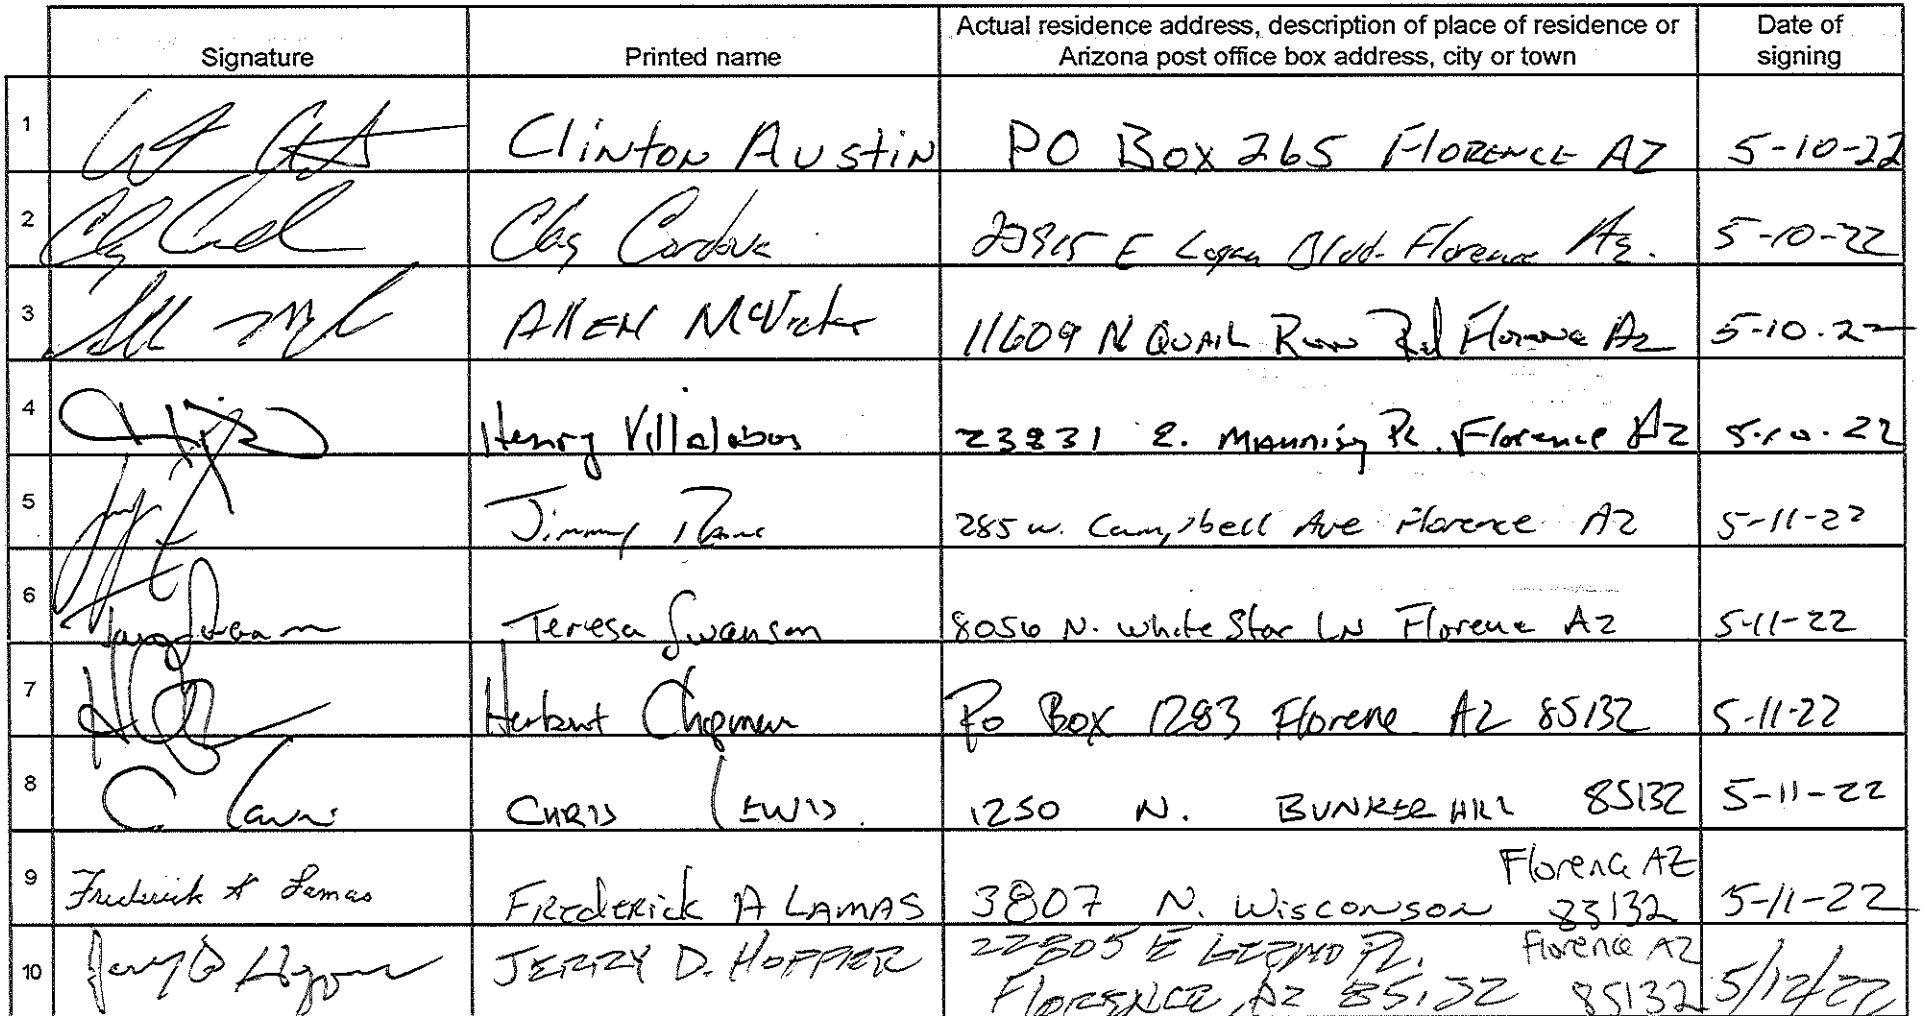 Signature Printed name Actual residence address, description of place of residence or Arizona post office box address, city or town Date of signing
1 Clinton Austin PO Box 265 Florence AZ 5-10-22
2 Clay Cordova E Logan Blvd. Florence Az. 5-10-22
3 Allen McVicker 11609 N Quail Run Rd Florence Az 5-10-22
4 Henry Villalobos 23831 E. Manning Pl. Florence AZ 5-10-22
5 Jimmy 285 W. Campbell Ave Florence AZ 5-11-22
6 Teresa Swanson 8056 N. White Star LN Florence AZ 5-11-22
7 Herbert Chapman Po Box 1283 Florence AZ 85132 5-11-22
8 CHRIS LEWIS. 1250 N. BUNKER HILL 85132 5-11-22
Florence AZ
9 Frederick A Lamas FREDERICK A LAMAS 3807 N. Wisconson 85132 5-11-22
10 JERRY D. HOPPER E PL. Florence AZ
FLORENCE, AZ 85132 85132 5/12/22